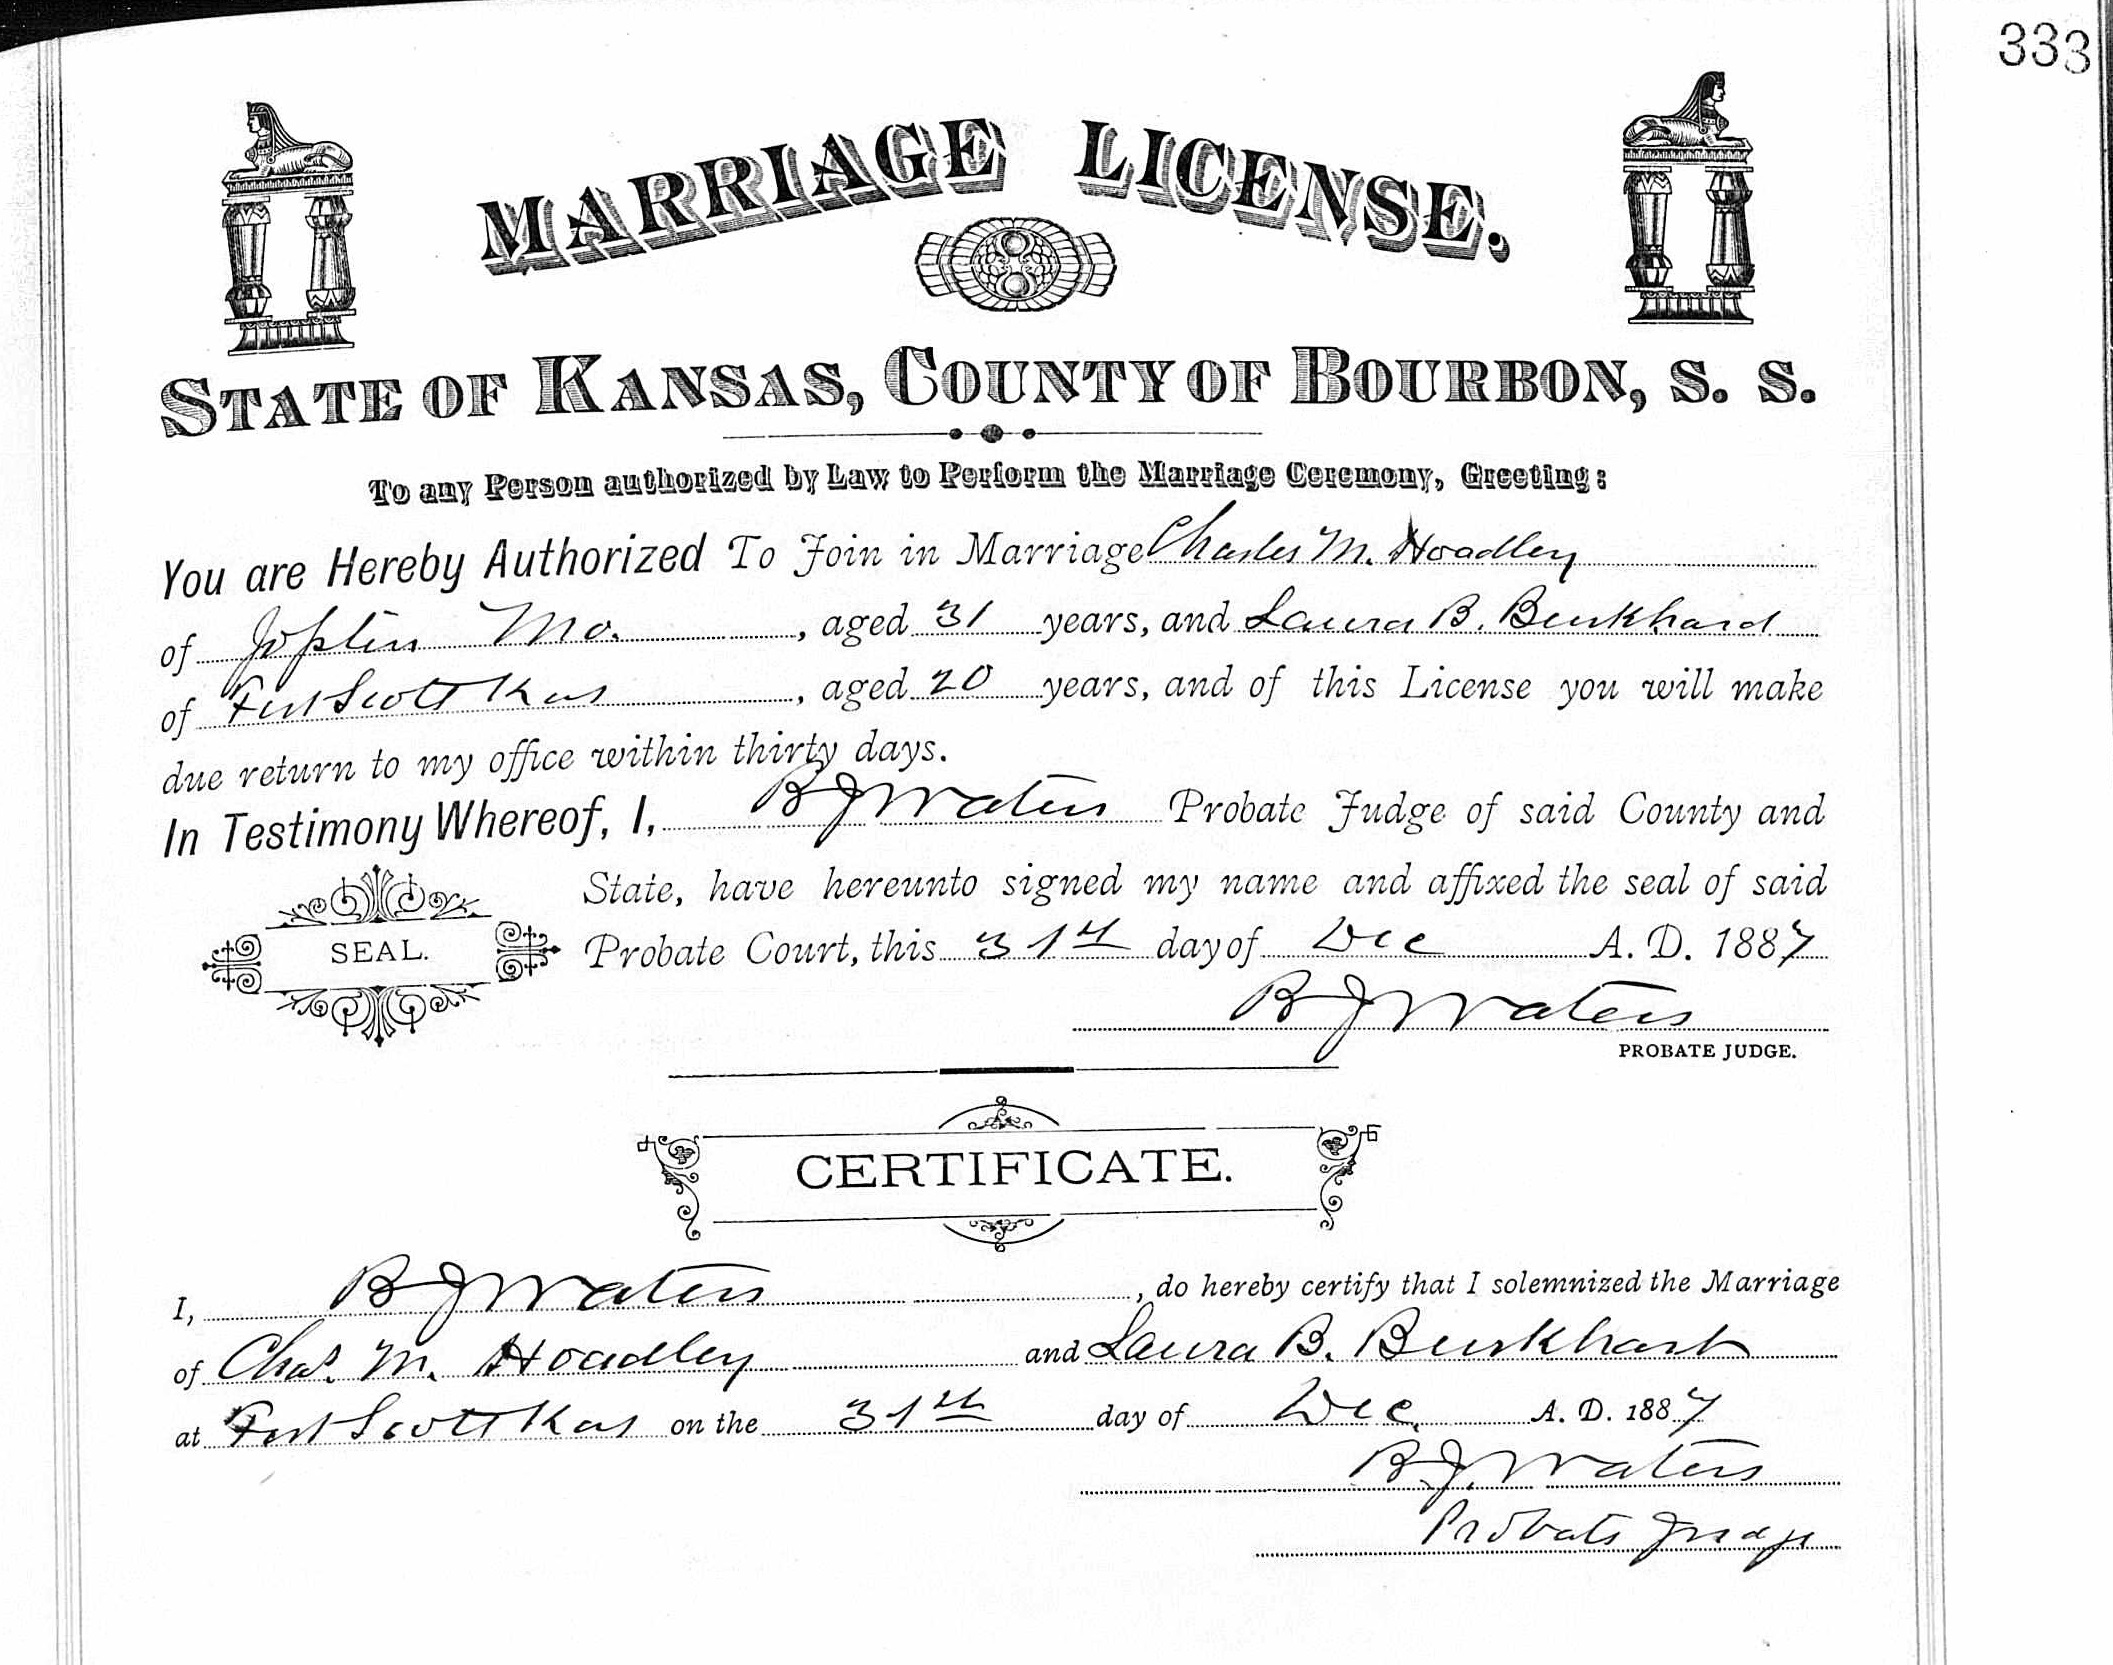 333
MARRIAGE LICENSE.
STATE OF KANSAS, COUNTY OF BOURBON, S. S.
To any Person authorized by Law to Perform the Marriage Ceremony, Greeting:
You are Hereby Authorized To Join in Marriage Charles M. Hoadley
of Joplin Mo. , aged 31 years, and Laura B. Burkhard
of Fort Scott Kas , aged 20 years, and of this License you will make
due return to my office within thirty days.
In Testimony Whereof, I, B J Waters Probate Judge of said County and
State, have hereunto signed my name and affixed the seal of said
SEAL. Probate Court, this 31st day of Dec A. D. 1887
B J Waters
PROBATE JUDGE.
CERTIFICATE.
I, B J Waters , do hereby certify that I solemnized the Marriage
of Chas. M. Hoadley and Laura B. Burkhart
at Fort Scott Kas on the 31st day of Dec. A. D. 1887
B. J. Waters
Probate Judge